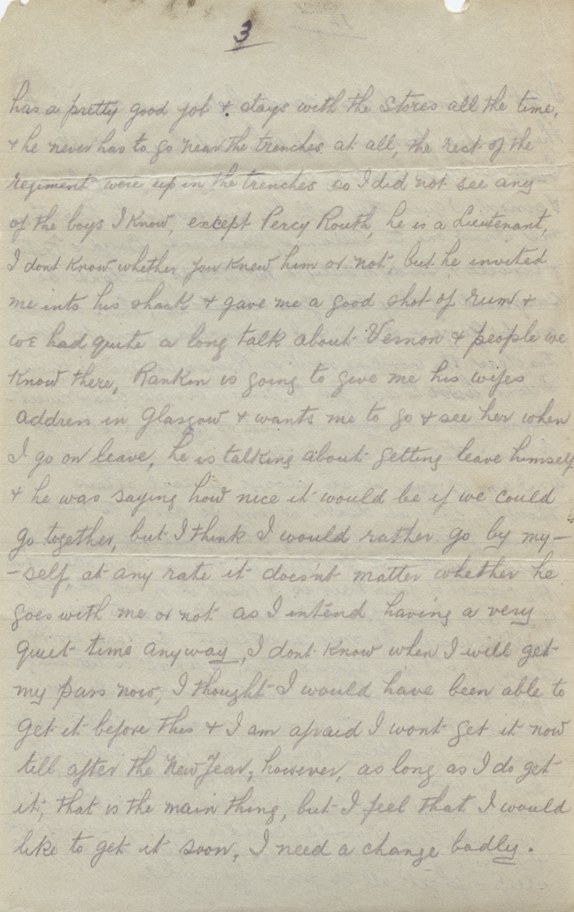 3
has a pretty good job & stays with the Stores all the time,
& he never has to go near the trenches at all, the rest of the
regiment were up in the trenches so I did not see any
of the boys I know, except Percy Routh, he is a Lieutenant,
I dont know whether you knew him or not, but he invited
me into his shack & gave me a good shot of rum &
we had quite a long talk about Vernon & people we
know there, Rankin is going to give me his wifes
address in Glasgow & wants me to go & see her when
I go on leave, he is talking about getting leave himself
& he was saying how nice it would be if we could
go together, but I think I would rather go by my-
-self, at any rate it doesn't matter whether he
goes with me or not as I intend having a very
quiet time anyway, I dont know when I will get
my pass now, I thought I would have been able to
get it before this & I am afraid I wont get it now
till after the New Year, however, as long as I do get
it, that is the main thing, but I feel that I would
like to get it soon, I need a change badly.